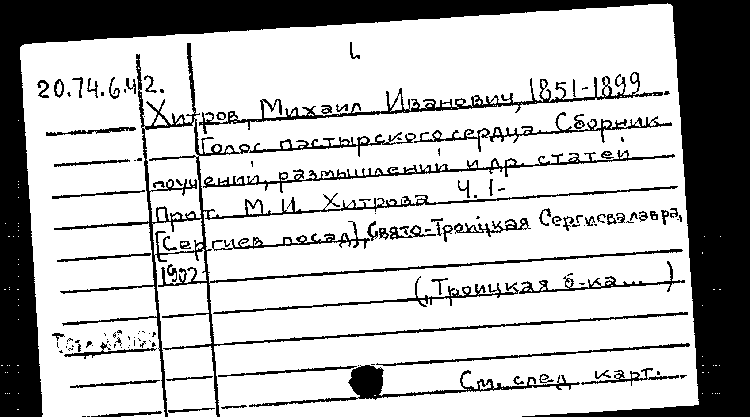 1.
20.74.6.42.
Хитров, Михаил Иванович, 1851-1899
Голос пастырского сердца. Сборник
поучений, размышлений и др. статей
Прот. М. И. Хитрова Ч. 1-
[Сергиев посад], Свято-Троицкая Сергиева лавра,
1902
("Троицкая б-ка... )
См. след карт.